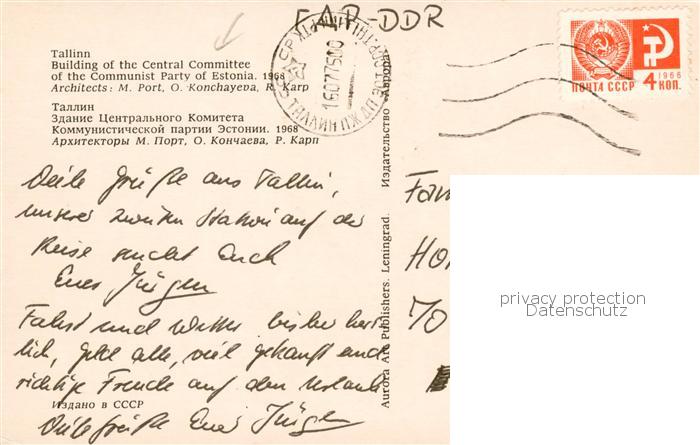 ГДР-DDR
Tallinn
Building of the Central Committee
of the Communist Party of Estonia. 1968
Architects: M. Port, O. Konchayeva, R. Karp
Таллин
Здание Центрального Комитета
Коммунистической партии Эстонии. 1968
Архитекторы М. Порт, О. Кончаева, Р. Карп
160775
ТАЛЛИН
1966
4 КОП.
ПОЧТА СССР
Viele Grüße aus Tallin,
unserer zweiten Station auf der
Reise sendet Euch
Euer Jürgen
Fahrt und Wetter bisher herr-
lich, gute alle, viel gekauft und
richtige Freude auf den Urlaub
Издано в СССР
Viele Grüße Euer Jürgen
Aurora Art Publishers. Leningrad. Издательство «Аврора»
Fam
Ho
70
privacy protection
Datenschutz